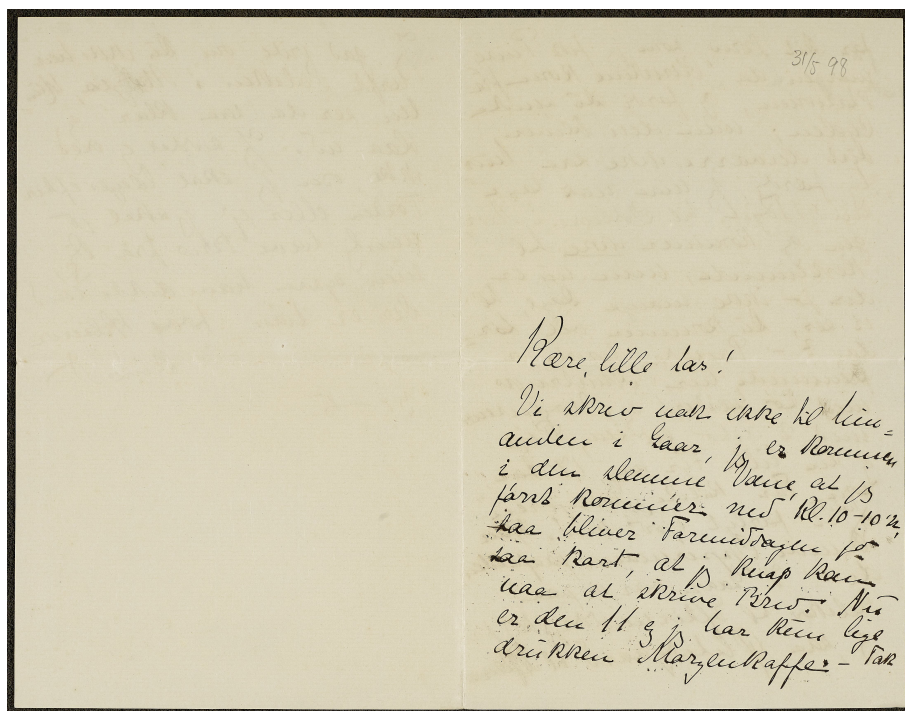 31/5 98
Kære, lille Las!
Vi skrev nok ikke til hin=
anden i Gaar, jeg er kommen
i den slemme Vane, at jeg
først kommer ned Kl. 10-10½,
saa bliver Formiddagen jo
saa kort, at jeg knap kan
naa at skrive Brev. Nu
er den 11 og jeg har kun lige
drukken Morgenkaffe. – Tak